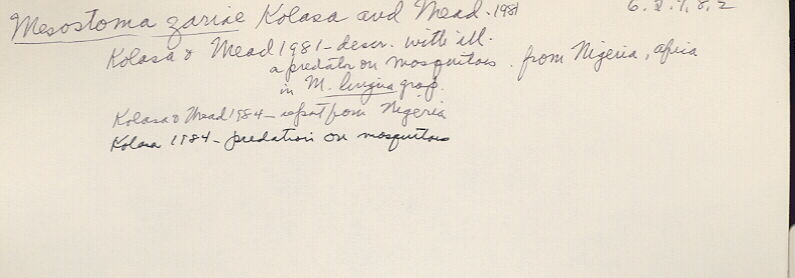 Mesostoma zariae Kolasa and Mead. 1981
6.2.1.8.2
Kolasa & Mead 1981 - descr. with ill.
a predator on mosquitoes. from Nigeria, africa
in M. lingua grop.
Kolasa & Mead 1984 - report from Nigeria
Kolasa 1984 - predation on mosquitoes